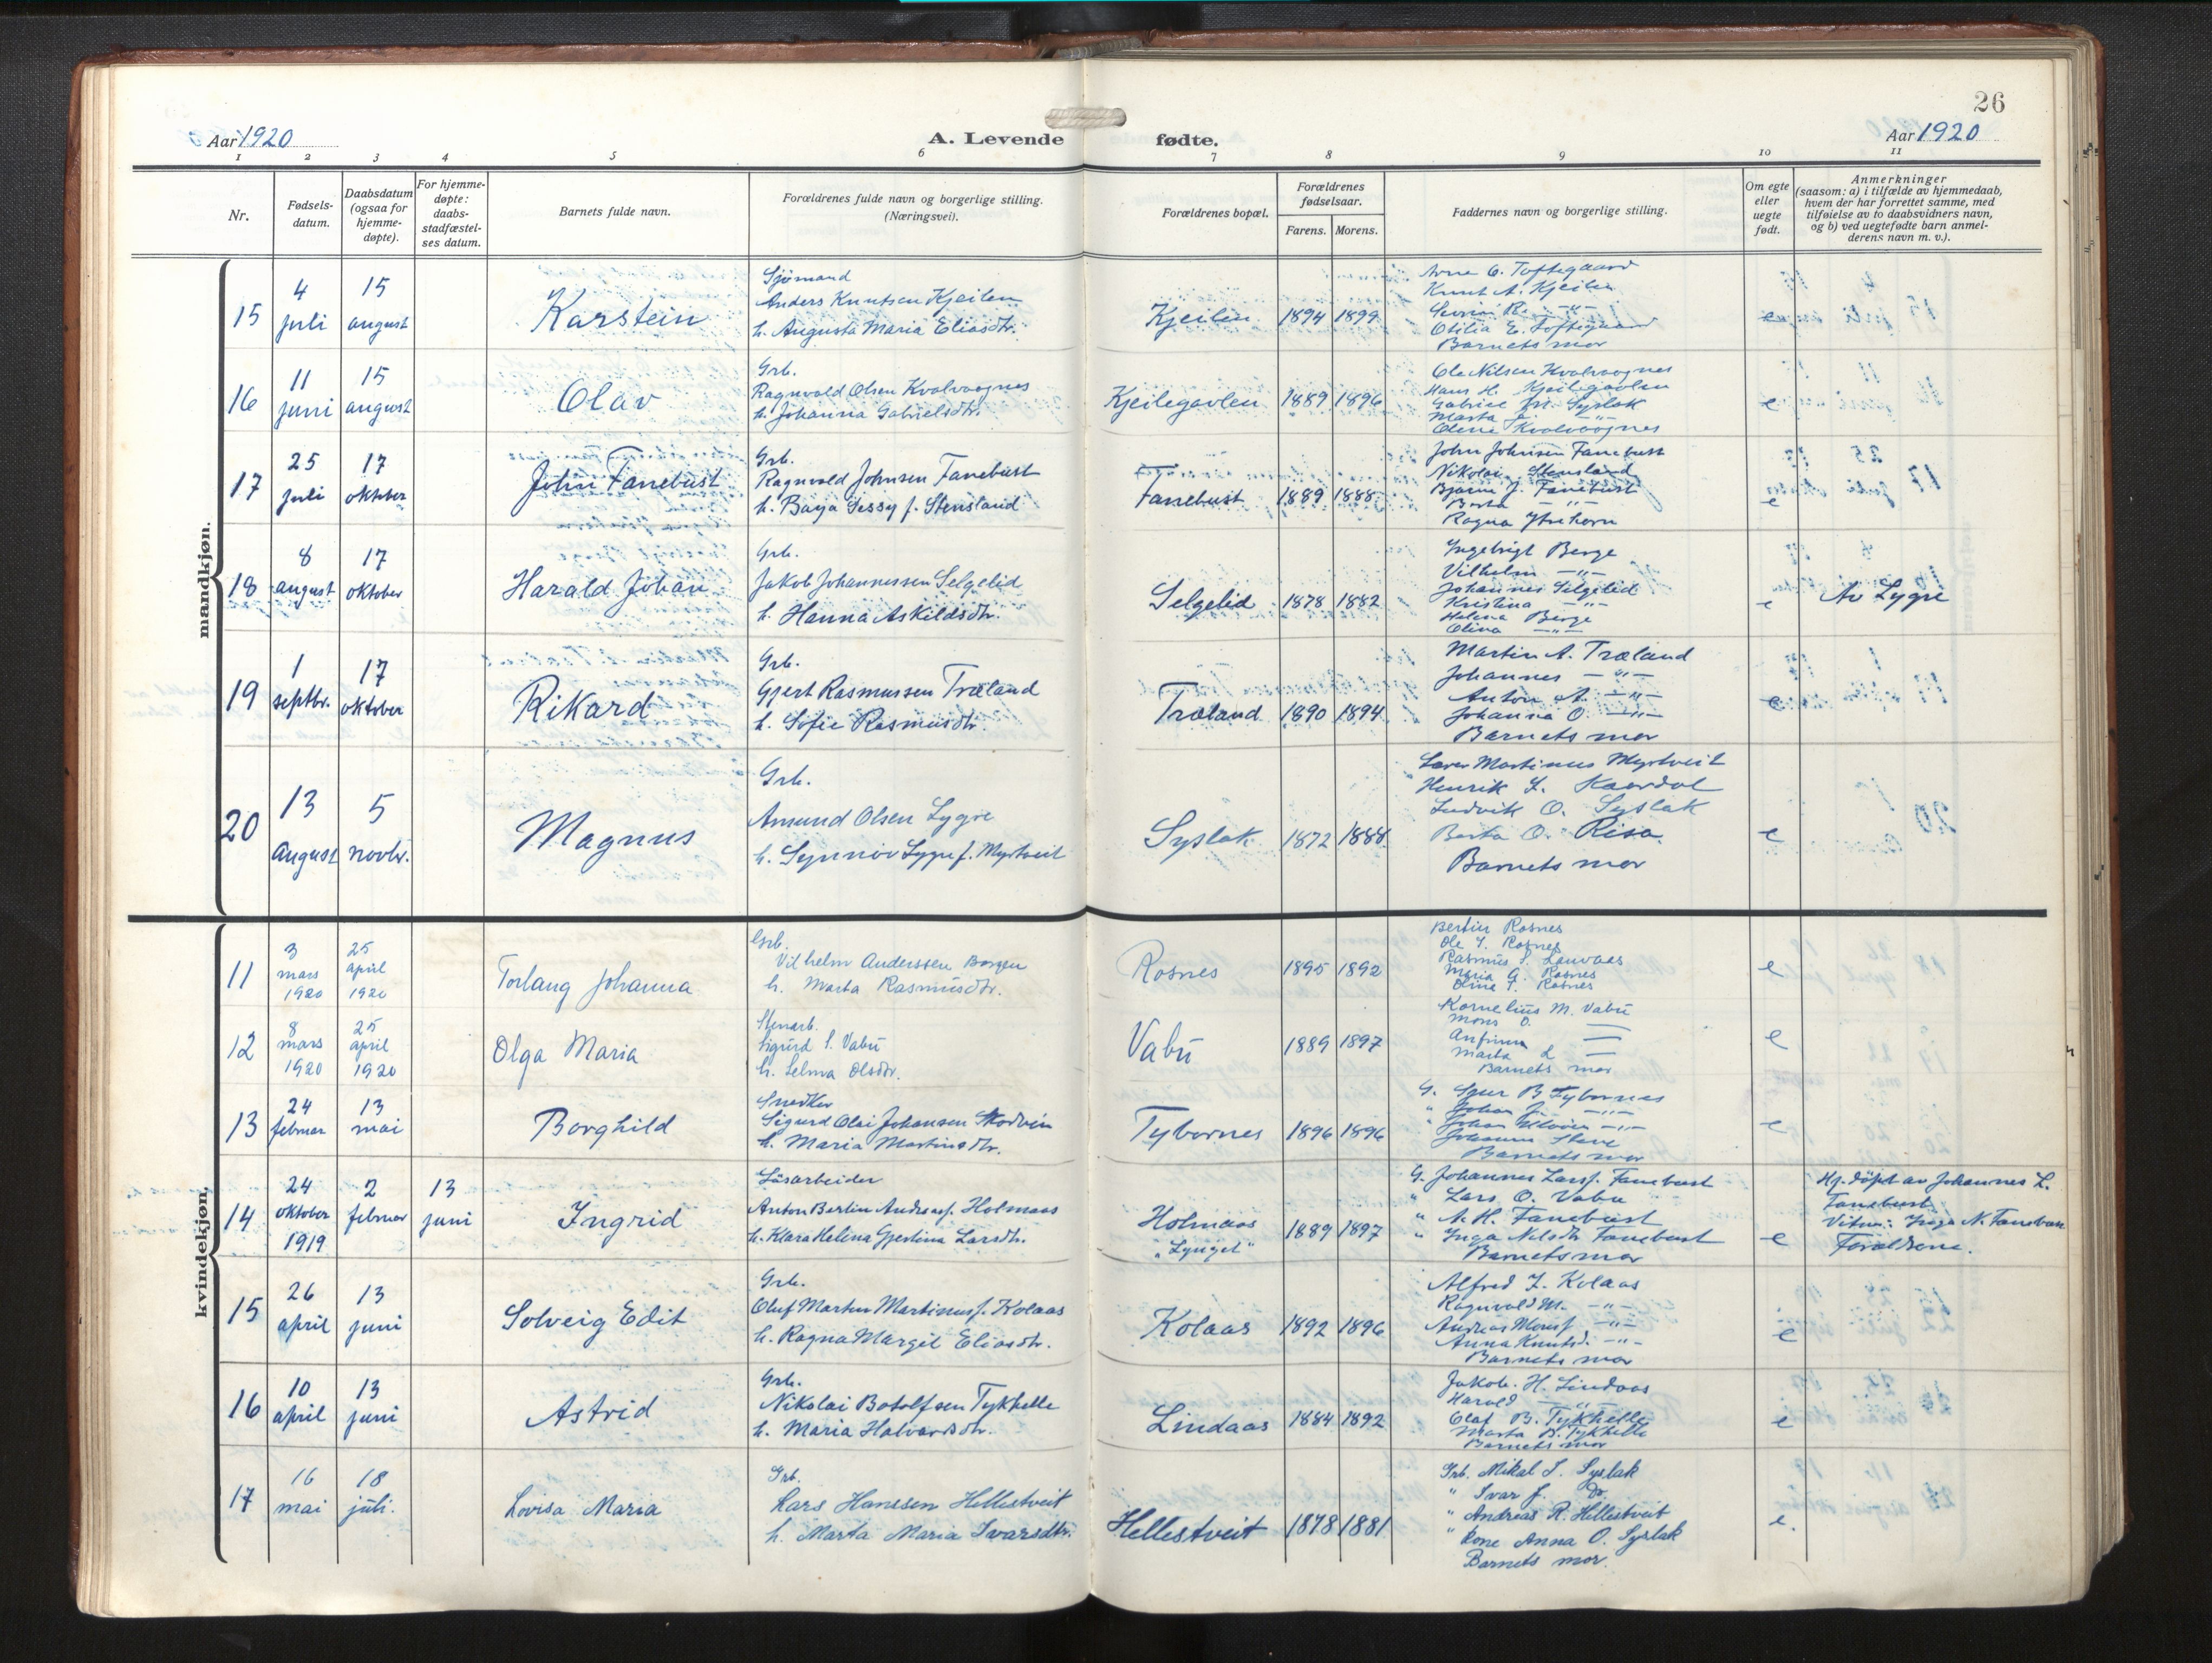 26
Aar 1920
A. Levende fødte.
Aar 1920
1 2 3 4 5 6 7 8 9 10 11
Nr.
Fødsels-
datum.
Daabsdatum
(ogsaa for
hjemme-
døpte).
For hjemme-
døpte:
daabs-
stadfæstel-
ses datum.
Barnets fulde navn.
Forældrenes fulde navn og borgerlige stilling.
(Næringsvei).
Forældrenes bopæl.
Forældrenes
fødselsaar.
Farens. Morens.
Faddernes navn og borgerlige stilling.
Om egte
eller
uegte
født.
Anmerkninger
(saasom: a) i tilfælde av hjemmedaab,
hvem der har forrettet samme, med
tilføielse av to daabsvidners navn,
og b) ved uegtefødte barn anmel-
derens navn m. v.).
mandkjøn.
15
4
juli
15
august
Karstein
Sjömand
Anders Knutsen Kjeilen
h. Augusta Maria Eliasdtr.
Kjeilen
1894 1899
Arne O. Toftegaard
Knut A. Kjeilen
Otilia E. Toftegaard
Barnets mor
e
16
11
juni
15
august
Olav
Grb.
Ragnvald Olsen Kvalvaagnes
h. Johanna Gabrielsdtr.
Kjeilegavlen
1889 1896
Ole Nilsen Kvalvaagnes
Hans H. Kjeilegavlen
Gabriel Syslak
Marta
Olene Kvalvaagnes
e
17
25
juli
17
oktober
John Fanebust
Grb.
Ragnvald Johnsen Fanebust
h. Baya Sessy f. Stensland
Fanebust
1889 1888
John Johnsen Fanebust
Nikolai Stensland
Bjarne J. Fanebust
Berta —"—
Ragna Ytrehorn
e
18
8
august
17
oktober
Harald Johan
Grb.
Jakob Johannessen Selgelid
h. Hanna Askildsdtr.
Selgelid
1878 1882
Ingebrigt Berge
Vilhelm —"—
Johannes Selgelid
Kristina —"—
Helena Berge
Olina —"—
e
Av Lygre
19
1
septbr.
17
oktober
Rikard
Grb.
Gjert Rasmussen Træland
h. Sofie Rasmusdtr.
Træland
1890 1894
Martin A. Træland
Johannes —"—
Anton A. —"—
Johanna O. —"—
Barnets mor
e
20
13
August
5
novbr.
Magnus
Grb.
Amund Olsen Lygre
h. Synnöv Lygre f. Myrtveit
Syslak
1872 1888
Lærer Martinus Myrtveit
Henrik L. Kaardal
Ludvik O. Syslak
Berta O. Risa.
Barnets mor
e
kvindekjøn.
11
3
mars
1920
25
april
1920
Torlaug Johanna
Grb.
Vilhelm Anderssen Borgen
h. Marta Rasmusdtr.
Rosnes
1895 1892
Bertin Rosnes
Ole J. Rosnes
Rasmus S. Lauvaas
Maria G. Rosnes
Oline J. Rosnes
e
12
8
mars
1920
25
april
1920
Olga Maria
Stenarb.
Sigurd S. Vabø
h. Selma Olsdtr.
Vabø
1889 1897
Kornelius M. Vabø
Mons O. —
Anfinn —
Marta L —
Barnets mor
e
13
24
februar
13
mai
Borghild
Snedker
Sigurd Olai Johansen Skodvin
h. Maria Martinsdtr.
Tybornes
1896 1896
G. B Tybornes
" Johan J. —"—
" Johan —"—
Barnets mor
e
14
24
oktober
1919
2
februar
13
juni
Ingrid
Løsarbeider
Anton Bertin Andreasf. Holmaas
h. Klara Helena Gjertina Larsdtr.
Holmaas
"Lynget"
1889 1897
G. Johannes Larsf. Fanebust
" Lars O. Vabø
" A. H. Fanebust
" Inga Nilsdtr Fanebust
Barnets mor
e
Hj. döpt av Johannes L.
Fanebust
Vitner: Inga N. Fanebust
Foreldrene.
15
26
april
13
juni
Solveig Edit
Grb.
Oluf Martin Martinusf. Kolaas
h. Ragna Margit Eliasdtr.
Kolaas
1892 1896
Alfred J. Kolaas
Ragnvald M. —"—
Andreas Monsf —"—
Anna Knutsd. —"—
Barnets mor
e
16
10
april
13
juni
Astrid
Grb.
Nikolai Botolfsen Tykhelle
h. Maria Halvardsdtr.
Lindaas
1884 1892
Jakob. H. Lindaas
Harald —"—
Olaf B. Tykhelle
Marta B. Tykhelle
Barnets mor
e
17
16
mai
18
juli.
Lovisa Maria
Grb.
Lars Hanssen Hellestveit
h. Marta Maria Ivarsdtr.
Hellestveit
1878 1881
Grb. Mikal I. Syslak
" Ivar J. Do
" Andreas R. Hellestveit
" Kone Anna O. Syslak
Barnets mor.
e.